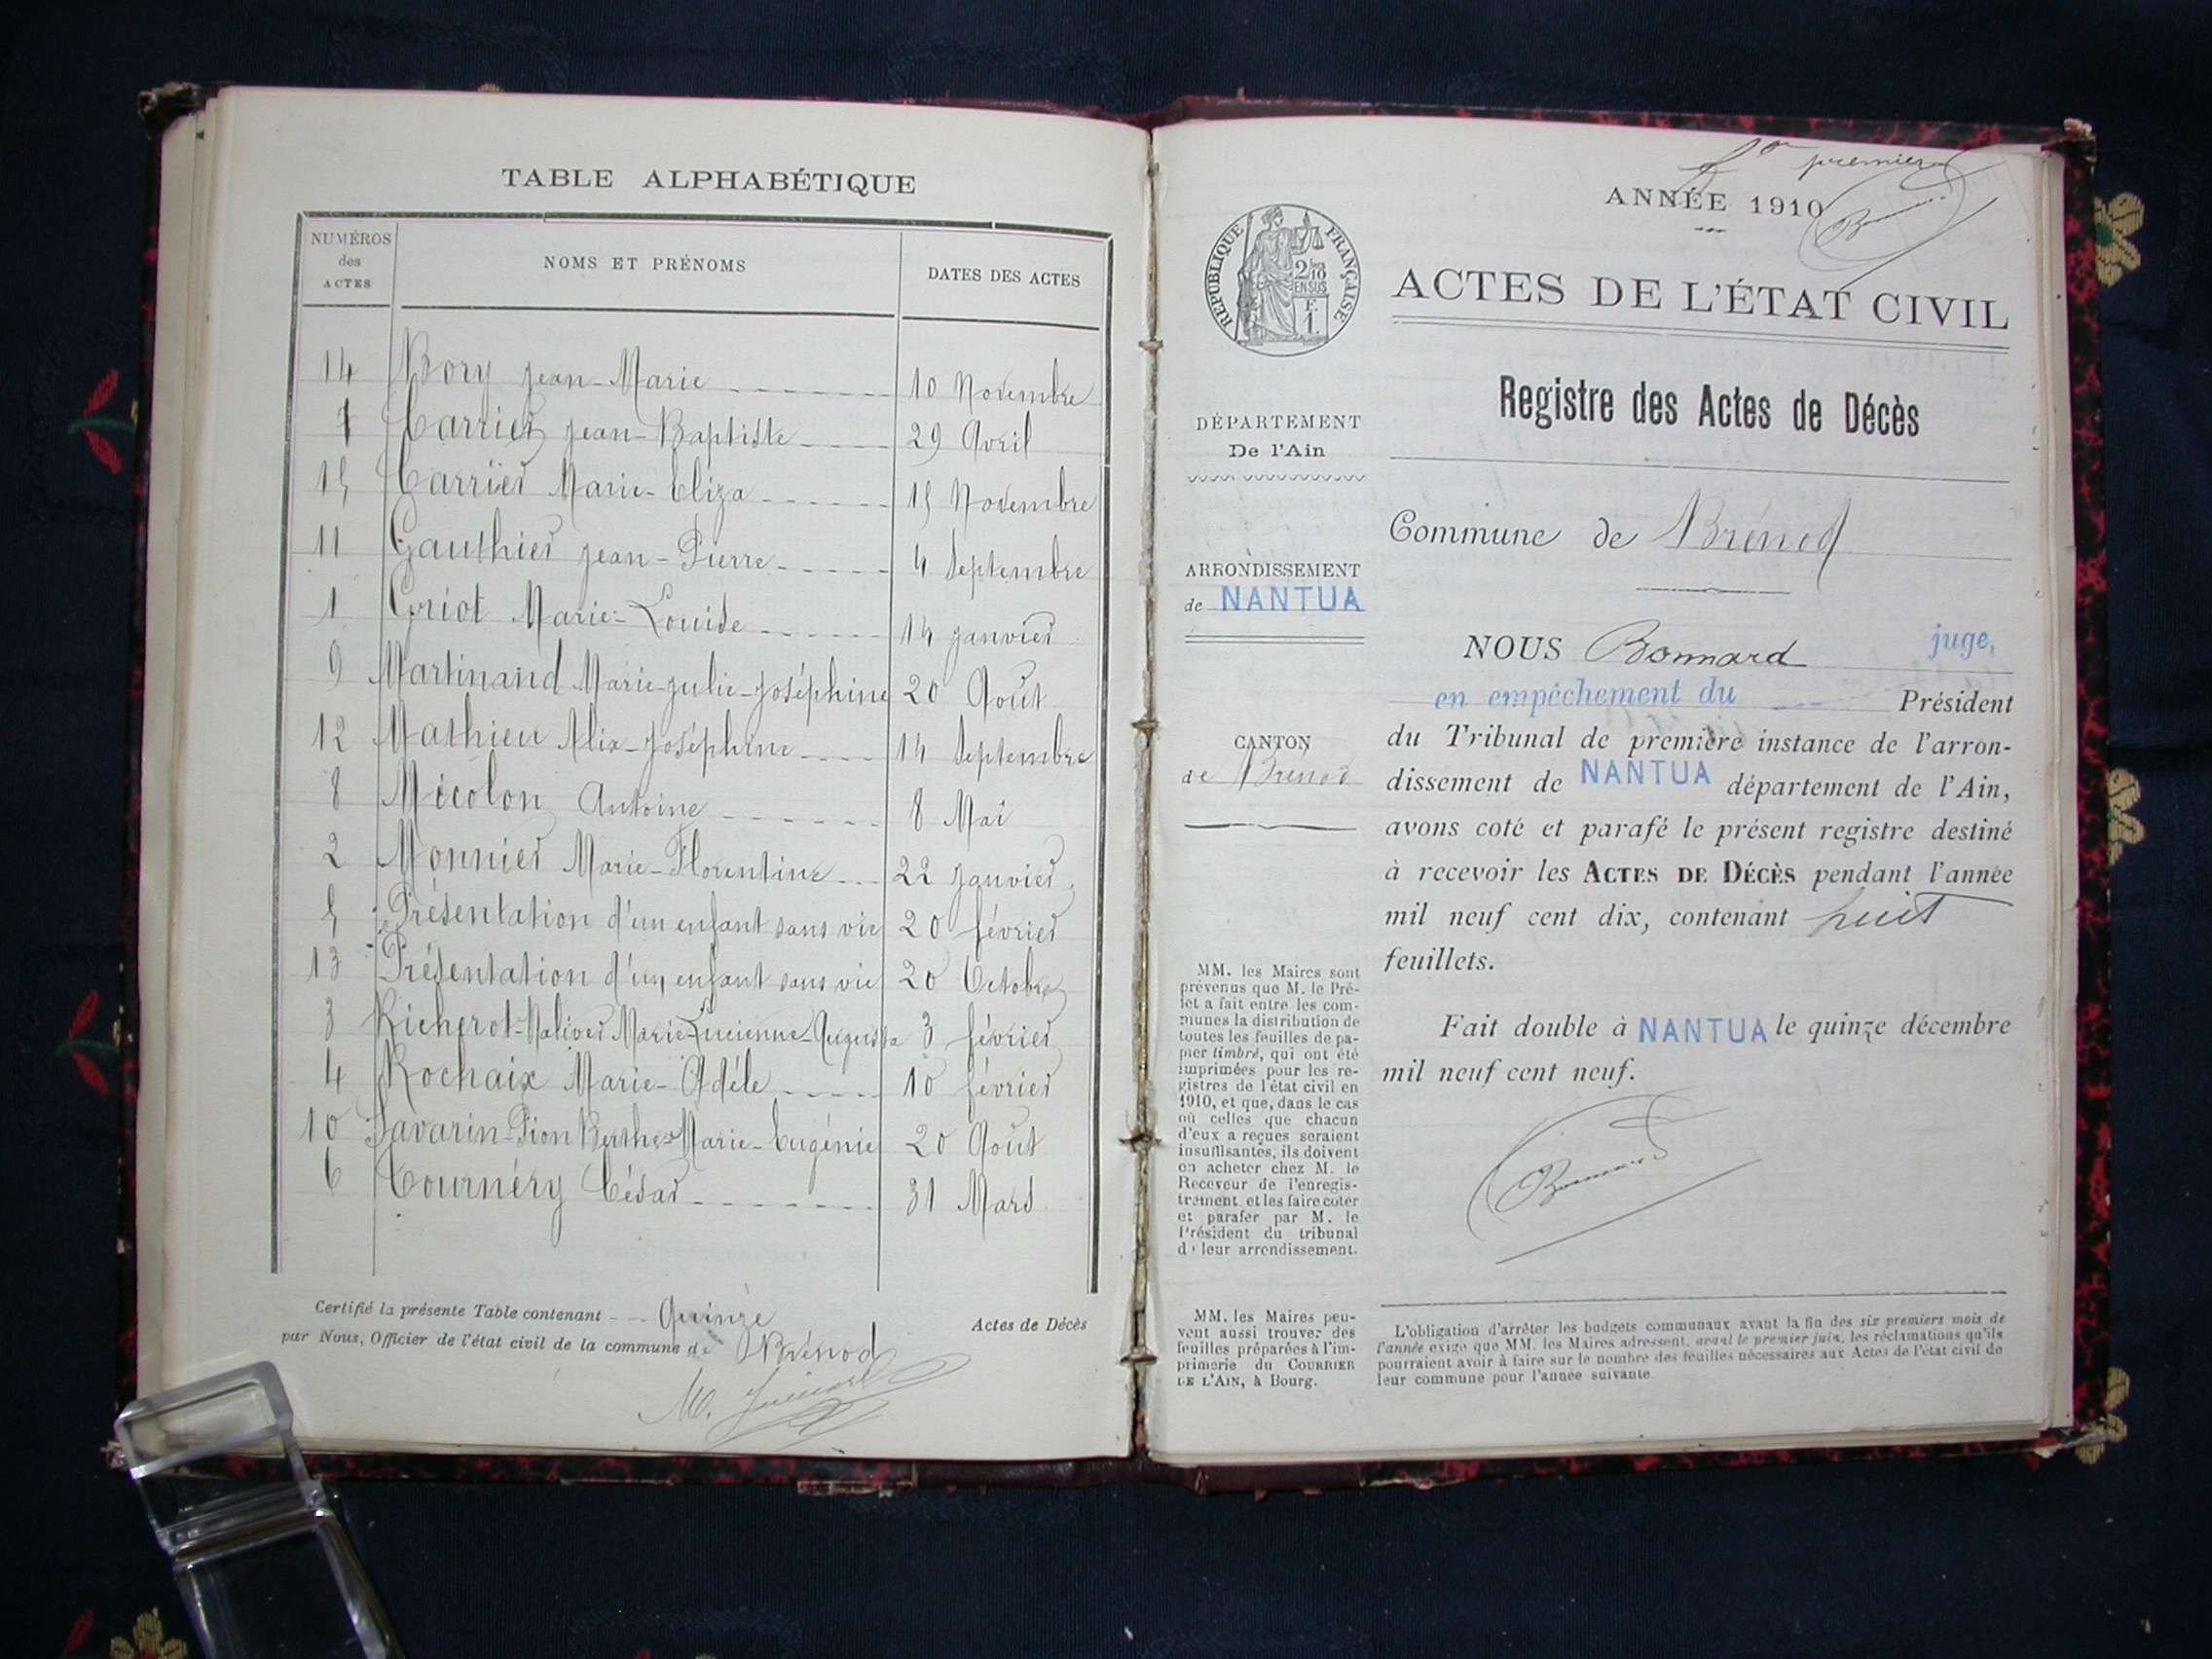 TABLE ALPHABÉTIQUE
NUMÉROS des ACTES NOMS ET PRÉNOMS DATES DES ACTES
14 Bory Jean-Marie 10 Novembre
7 Carrier Jean-Baptiste 29 Avril
15 Carrier Marie-Eliza 15 Novembre
11 Gauthier Jean-Pierre 4 Septembre
1 Griot Marie-Louise 14 Janvier
9 Martinand Marie-Julie-Joséphine 20 Août
12 Mathieu Alix-Joséphine 14 Septembre
8 Micolon Antoine 8 Mai
2 Monnier Marie-Florentine 22 Janvier
5 Présentation d'un enfant sans vie 20 février
13 Présentation d'un enfant sans vie 20 Octobre
3 Richerot-Maliver Marie-Lucienne-Augusta 3 février
4 Rochaix Marie-Adéle 10 février
10 Savarin-Pion Berthe-Marie-Eugénie 20 Août
6 Tournéry César 31 Mars
Certifié la présente Table contenant Quinze Actes de Décès
par Nous, Officier de l'état civil de la commune de Brénod
premier
ANNÉE 1910
RÉPUBLIQUE FRANÇAISE
2/10 EN SUS
F. 1.
ACTES DE L'ÉTAT CIVIL
Registre des Actes de Décès
DÉPARTEMENT
De l'Ain
ARRONDISSEMENT
de NANTUA
CANTON
de Brénod
MM. les Maires sont
prévenus que M. le Pré-
fet a fait entre les com-
munes la distribution de
toutes les feuilles de pa-
pier timbré, qui ont été
imprimées pour les re-
gistres de l'état civil en
1910, et que, dans le cas
où celles que chacun
d'eux a reçues seraient
insuffisantes, ils doivent
en acheter chez M. le
Receveur de l'enregis-
trement et les faire coter
et parafer par M. le
Président du tribunal
de leur arrondissement.
MM. les Maires peu-
vent aussi trouver des
feuilles préparées à l'im-
primerie du COURRIER
DE L'AIN, à Bourg.
Commune de Brénod
NOUS Bonnard juge,
en empêchement du Président
du Tribunal de première instance de l'arron-
dissement de NANTUA département de l'Ain,
avons coté et parafé le présent registre destiné
à recevoir les ACTES DE DÉCÈS pendant l'année
mil neuf cent dix, contenant huit
feuillets.
Fait double à NANTUA le quinze décembre
mil neuf cent neuf.
L'obligation d'arrêter les budgets communaux avant la fin des six premiers mois de
l'année exige que MM. les Maires adressent, avant le premier juin, les réclamations qu'ils
pourraient avoir à faire sur le nombre des feuilles nécessaires aux Actes de l'état civil de
leur commune pour l'année suivante